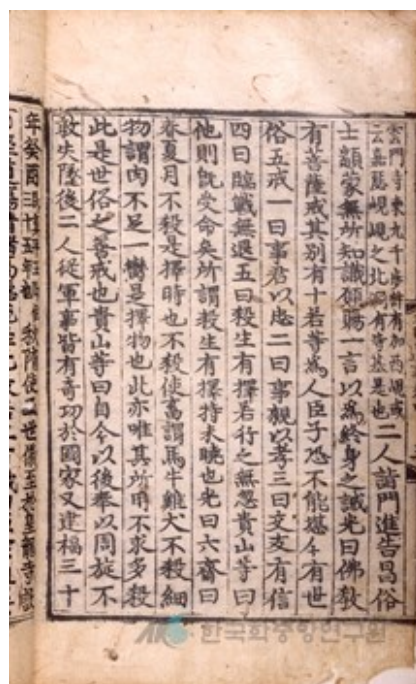 雲門寺東九千步許有加西峴或
云嘉瑟峴峴之北洞有寺基是也
二人詣門進告曰俗
士顓蒙無所知識願賜一言以爲終身之誡光曰佛教
有菩薩戒其別有十若等爲人臣子恐不能堪今有世
俗五戒一曰事君以忠二曰事親以孝三曰交友有信
四曰臨戰無退五曰殺生有擇若行之無忽貴山等曰
他則旣受命矣所謂殺生有擇特未曉也光曰六齋日
春夏月不殺是擇時也不殺使畜謂馬牛雞犬不殺細
物謂肉不足一臠是擇物也此亦唯其所用不求多殺
此是世俗之善戒也貴山等曰自今以後奉以周旋不
敢失墜後二人從軍事皆有奇功於國家又建福三十
年癸酉
秋隋使王世儀至於皇龍寺設
한국학중앙연구원